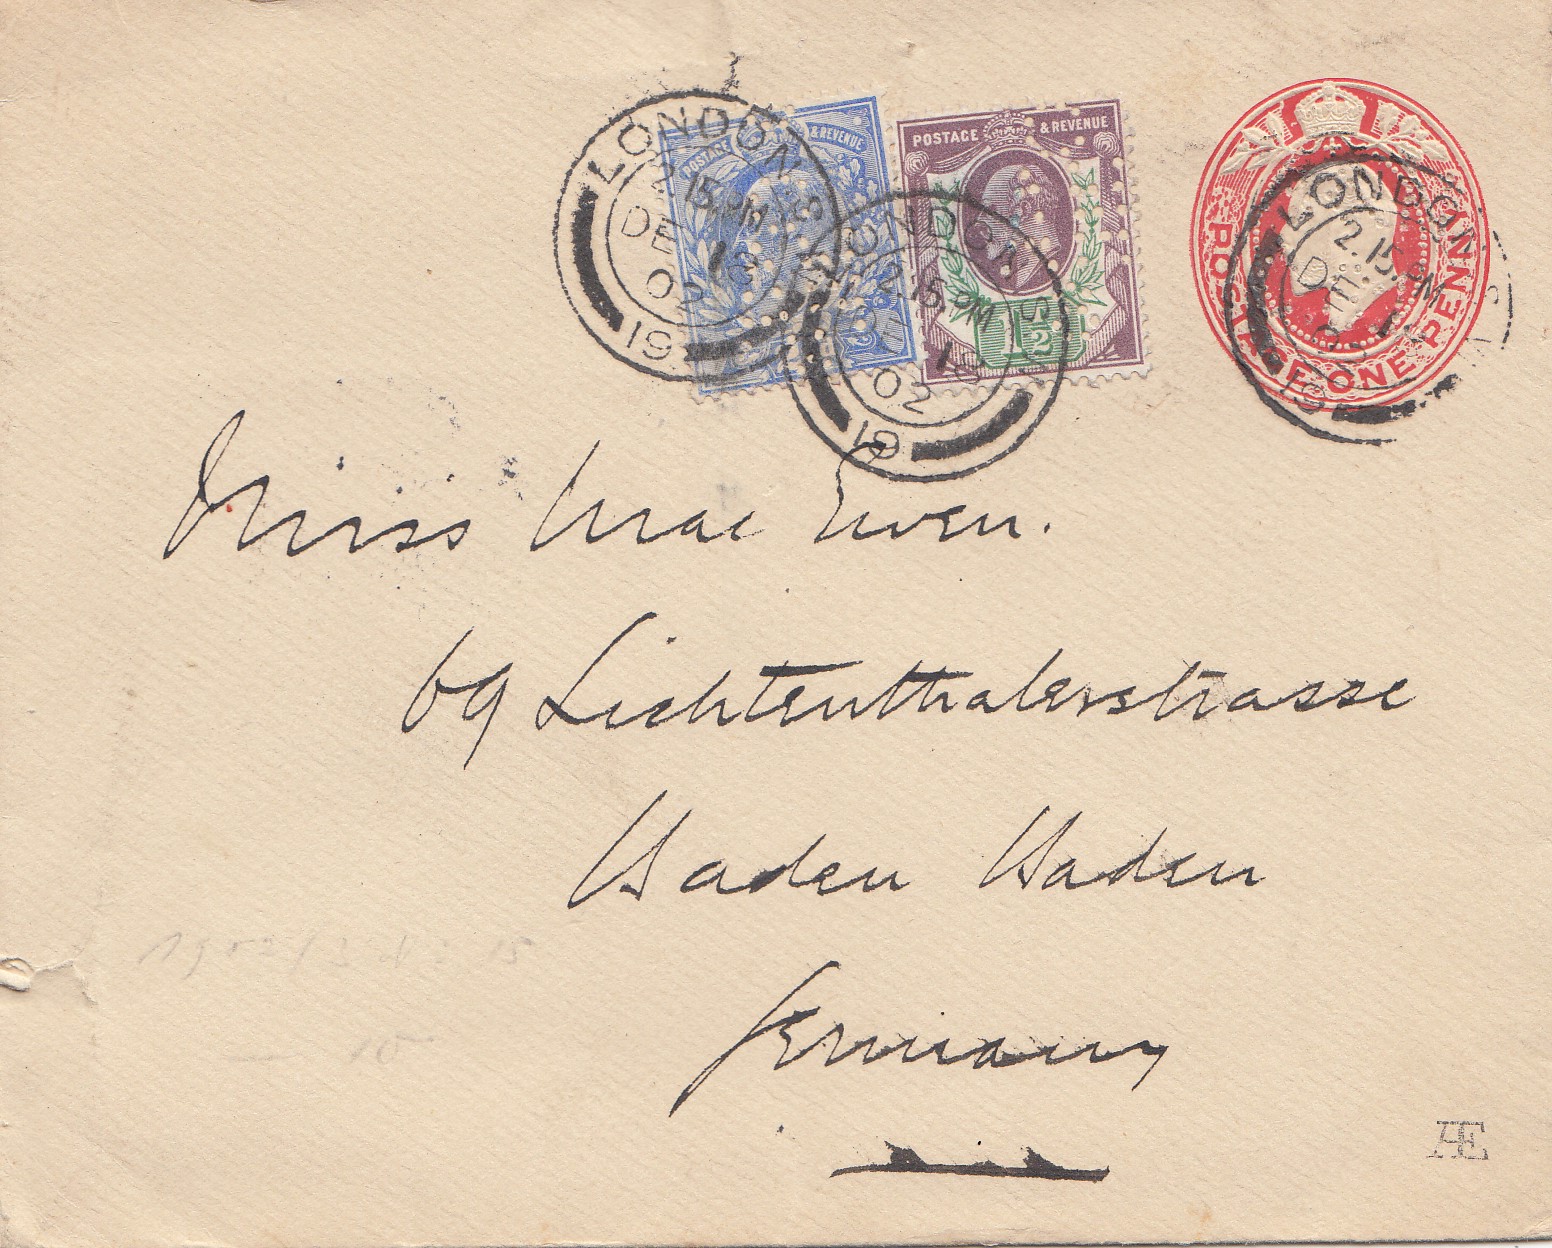 POSTAGE & REVENUE
POSTAGE & REVENUE
1½
POSTAGE ONE PENNY
LONDON S
2.15.PM
DE 18
02
19
LONDON S
2.15.PM
DE 18
02
19
LONDON
2.15.PM
DE
19
Miss Mac Ewen.
69 Lichtenthalerstrasse
Baden Baden
Germany
Æ